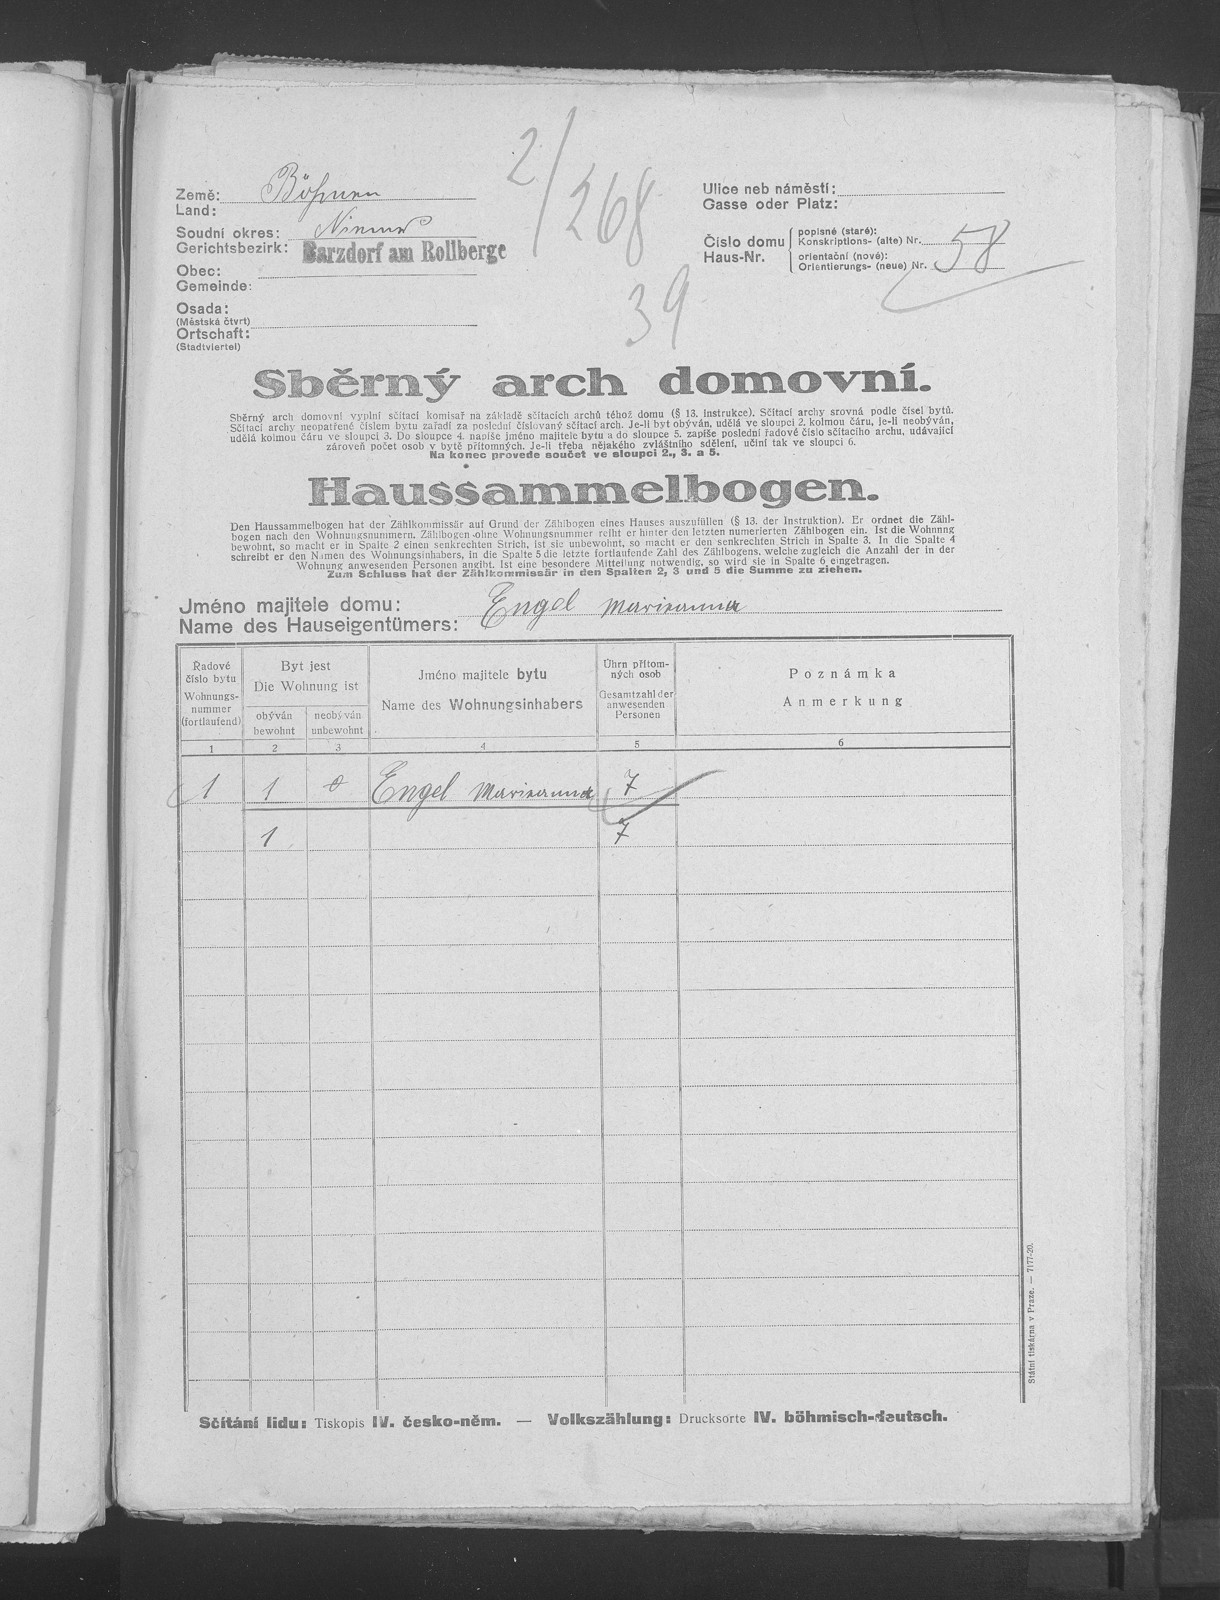 2/268
39
Země: Böhmen
Land:
Soudní okres: Niemes
Gerichtsbezirk: Barzdorf am Rollberge
Obec:
Gemeinde:
Osada:
(Městská čtvrt)
Ortschaft:
(Stadtviertel)
Ulice neb náměstí:
Gasse oder Platz:
Číslo domu popisné (staré):
Konskriptions- (alte) Nr. 58
Haus-Nr. orientační (nové):
Orientierungs- (neue) Nr.
Sběrný arch domovní.
Sběrný arch domovní vyplní sčítací komisař na základě sčítacích archů téhož domu (§ 13. instrukce). Sčítací archy srovná podle čísel bytů.
Sčítací archy neopatřené číslem bytu zařadí za poslední číslovaný sčítací arch. Je-li byt obýván, udělá ve sloupci 2. kolmou čáru, je-li neobýván,
udělá kolmou čáru ve sloupci 3. Do sloupce 4. napíše jméno majitele bytu a do sloupce 5. zapíše poslední řadové číslo sčítacího archu, udávající
zároveň počet osob v bytě přítomných. Je-li třeba nějakého zvláštního sdělení, učiní tak ve sloupci 6.
Na konec provede součet ve sloupci 2., 3. a 5.
Haussammelbogen.
Den Haussammelbogen hat der Zählkommissär auf Grund der Zählbogen eines Hauses auszufüllen (§ 13. der Instruktion). Er ordnet die Zähl-
bogen nach den Wohnungsnummern. Zählbogen ohne Wohnungsnummer reiht er hinter den letzten numerierten Zählbogen ein. Ist die Wohnnng
bewohnt, so macht er in Spalte 2 einen senkrechten Strich, ist sie unbewohnt, so macht er den senkrechten Strich in Spalte 3. In die Spalte 4
schreibt er den Namen des Wohnungsinhabers, in die Spalte 5 die letzte fortlaufende Zahl des Zählbogens, welche zugleich die Anzahl der in der
Wohnung anwesenden Personen angibt. Ist eine besondere Mitteilung notwendig, so wird sie in Spalte 6 eingetragen.
Zum Schluss hat der Zählkommissär in den Spalten 2, 3 und 5 die Summe zu ziehen.
Jméno majitele domu: Engel Marieanna
Name des Hauseigentümers:
Řadové číslo bytu
Wohnungs-nummer (fortlaufend)
Byt jest
Die Wohnung ist
obýván
bewohnt
neobýván
unbewohnt
Jméno majitele bytu
Name des Wohnungsinhabers
Úhrn přítom-ných osob
Gesamtzahl der anwesenden Personen
Poznámka
Anmerkung
1 2 3 4 5 6
1 1 0 Engel Marieanna 7
1 7
Sčítání lidu: Tiskopis IV. česko-něm. — Volkszählung: Drucksorte IV. böhmisch-deutsch.
Státní tiskárna v Praze. — 7177-20.